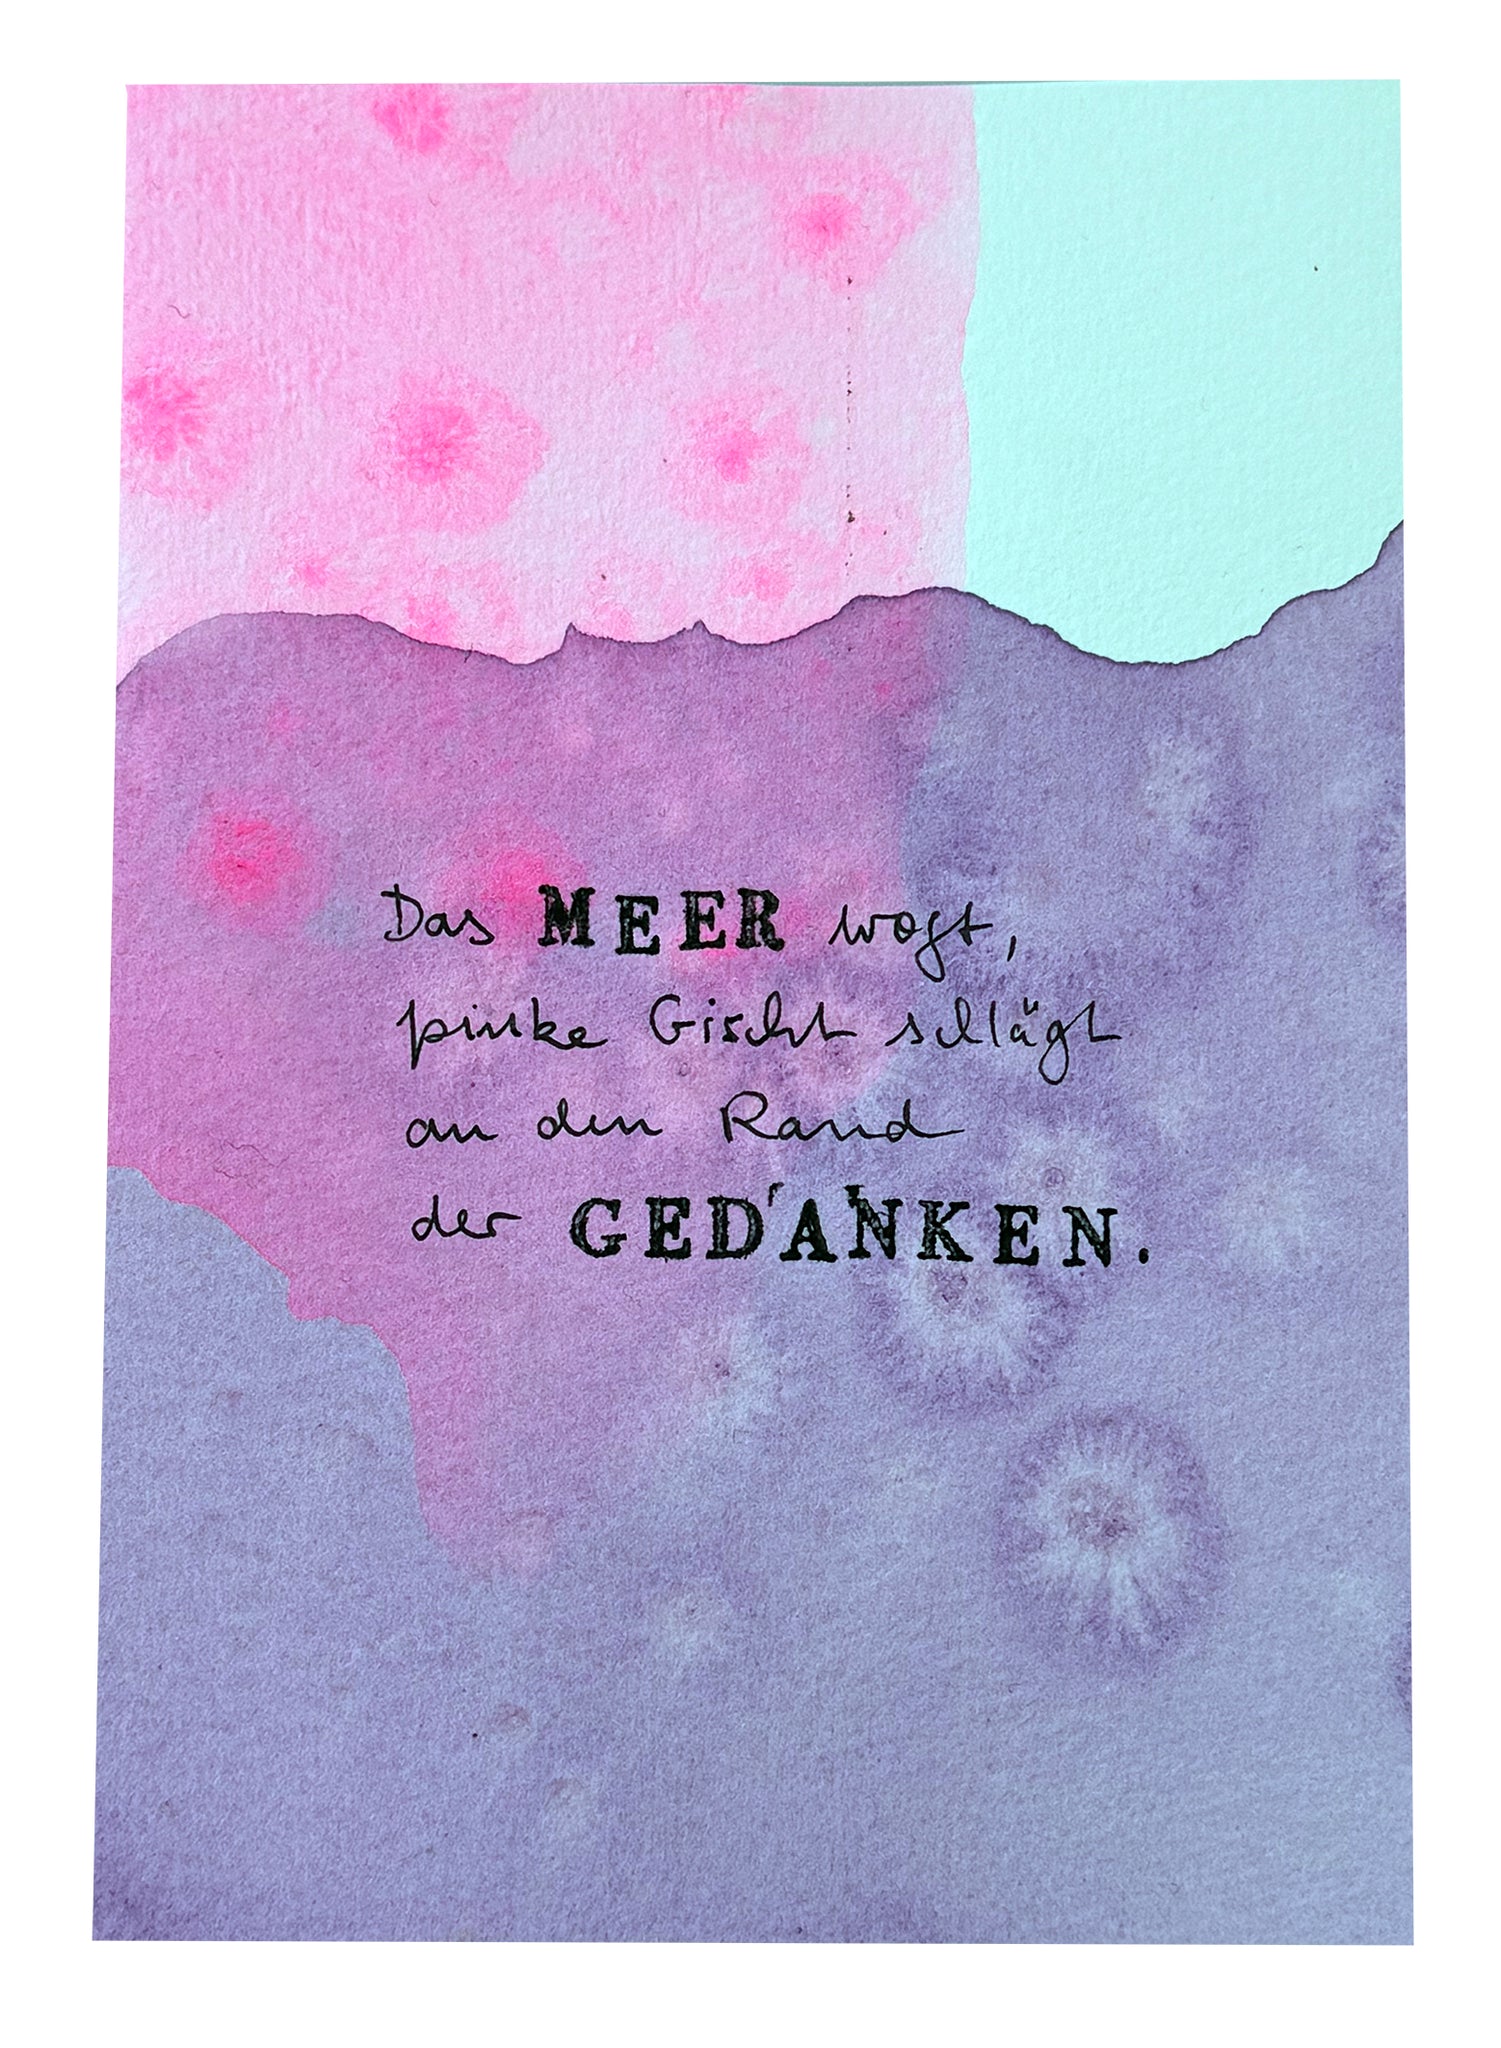 Das MEER wogt,
pinke Gischt schlägt
an den Rand
der GEDANKEN.